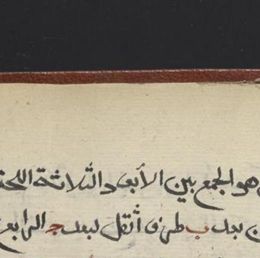 هو الجمع بين الأبعاد الثلاثة اللحنية
بعد ب طرف أثقل لبعد ج الرابع